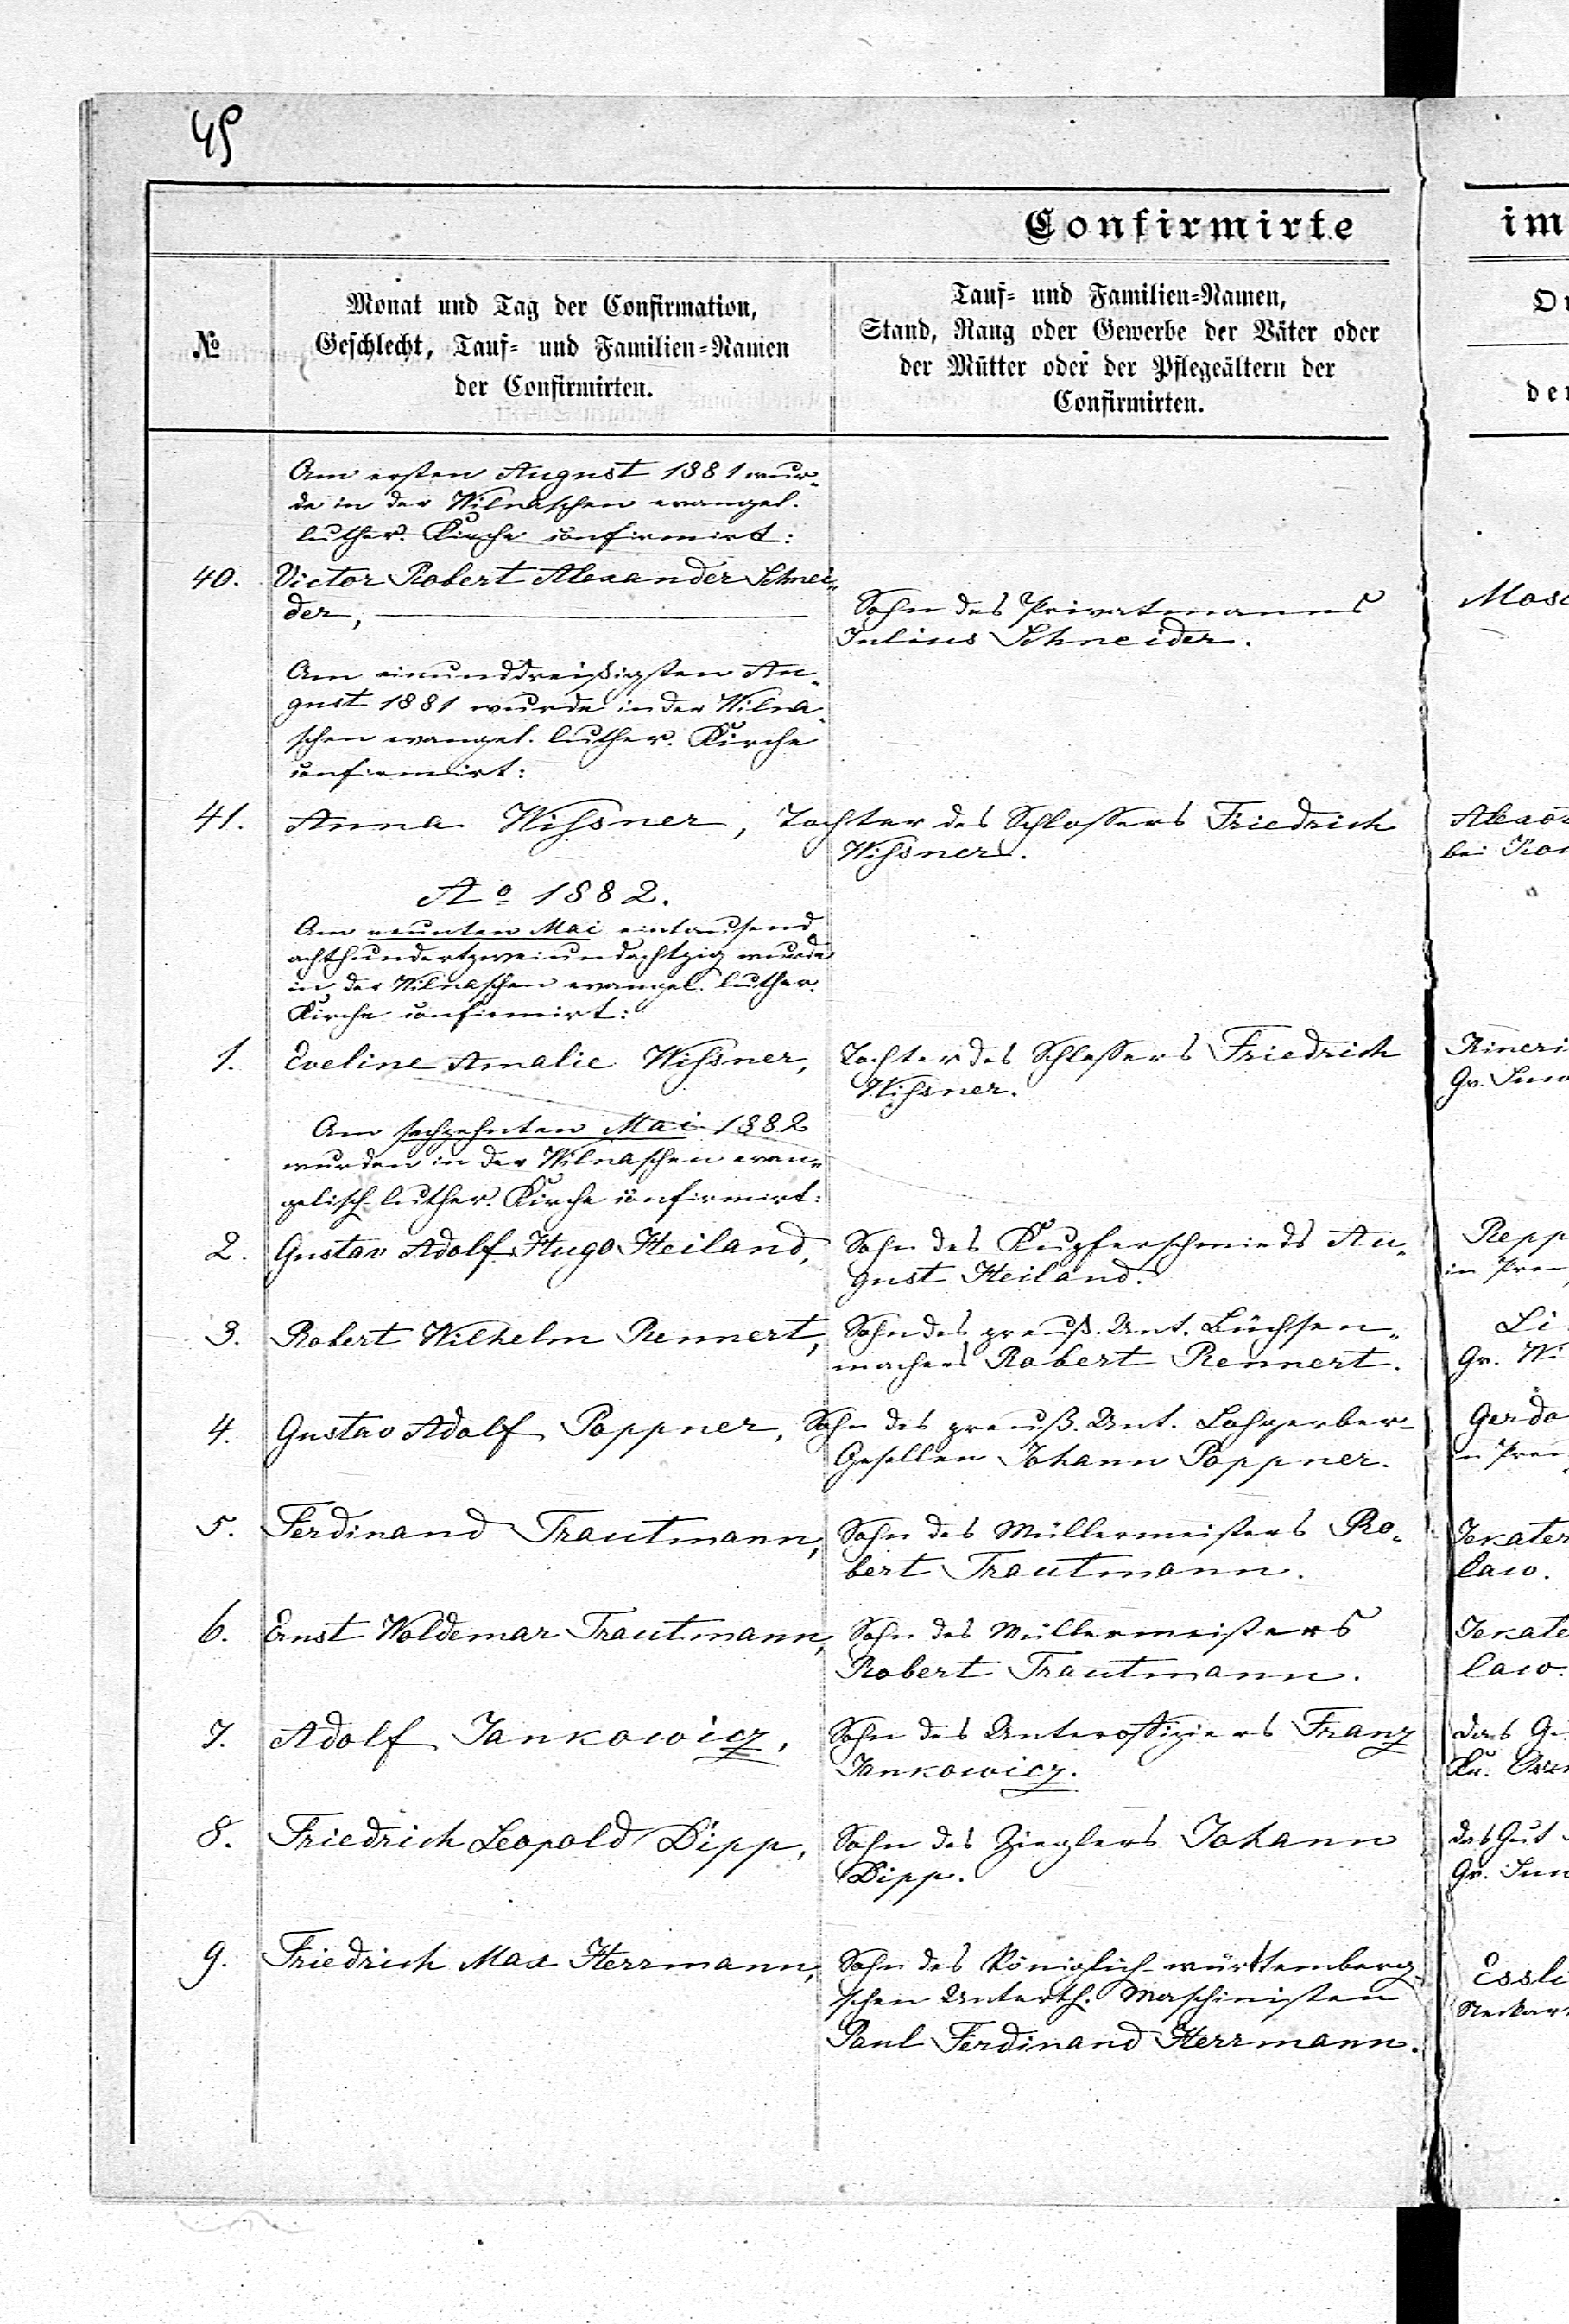 45
Confirmirte
im
№
Monat und Tag der Confirmation,
Geschlecht, Tauf- und Familien-Namen
der Confirmirten.
Tauf- und Familien-Namen,
Stand, Rang oder Gewerbe der Väter oder
der Mütter oder der Pflegeältern der
Confirmirten.
Am ersten August 1881 wur-
de in der Wilnaschen evangel.
luther. Kirche confirmirt:
40. Victor Robert Alexander Schnei-
der,
Sohn des Privatmanns
Julius Schneider.
Am einunddreißigsten Au-
gust 1881 wurde in der Wilna-
schen evangel. luther. Kirche
confirmirt:
41. Anna Wissner, Tochter des Schlossers Friedrich
Wissner.
bei
Ao 1882.
Am neunten Mai eintausend
achthundertzweiundachtzig wurde
in der Wilnaschen evangel. luther.
Kirche confirmirt:
1. Eveline Amalie Wissner, Tochter des Schlossers Friedrich
Wissner.
Gv.
Am sechzehnten Mai 1882
wurden in der Wilnaschen evan-
gelisch-luther. Kirche confirmirt:
2. Gustav Adolf Hugo Heiland, Sohn des Kupferschmieds Au-
gust Heiland.
Repp
in
3. Robert Wilhelm Rennert, Sohn des preuß. Unt. Büchsen-
machers Robert Rennert.
Li
Gv. Wi
4. Gustav Adolf Poppner, Sohn des preuß. Unt. Lohgerber-
Gesellen Johann Poppner.
Gerda
in
5. Ferdinand Trautmann, Sohn des Müllermeisters Ro-
bert Trautmann.
Jekater
law.
6. Ernst Woldemar Trautmann, Sohn des Müllermeisters
Robert Trautmann.
Jekate
law.
7. Adolf Jankowicz, Sohn des Unteroffiziers Franz
Jankowicz.
das G
8. Friedrich Leopold Dipp, Sohn des Zieglers Johann
Dipp.
das Gut
Gv.
9. Friedrich Max Herrmann, Sohn des Königlich-württemberg-
schen Unterth. Maschinisten
Paul Ferdinand Herrmann.
Essli
Neckar